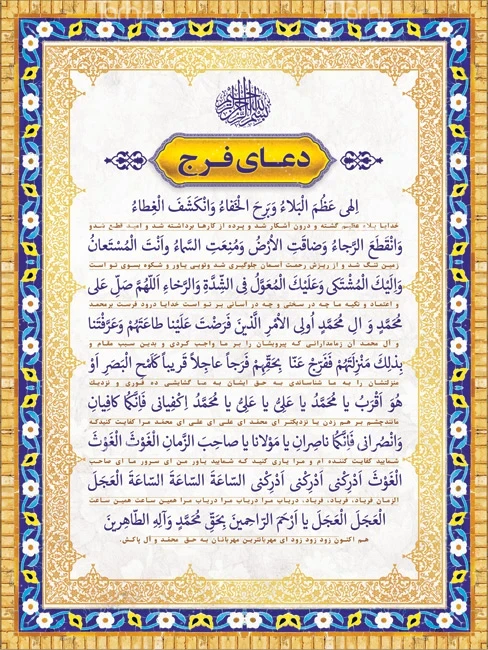 بسم الله الرحمن الرحیم
دعـای فـرج
اِلٰهی عَظُمَ الْبَلاءُ وَبَرِحَ الْخَفاءُ وَانْكَشَفَ الْغِطاءُ
خدایا بلاء عظیم گشته و درون آشکار شد و پرده از کارها برداشته شد و امید قطع شدو
وَانْقَطَعَ الرَّجاءُ وَضاقَتِ الاَْرْضُ وَمُنِعَتِ السَّماءُ وَاَنْتَ الْمُسْتَعانُ
زمین تنگ شد و از ریزش رحمت آسمان جلوگیری شد وتویی یاور و شکوه بسوی تو است
وَاِلَیْكَ الْمُشْتَكی وَعَلَیْكَ الْمُعَوَّلُ فِی الشِّدَّةِ وَالرَّخاءِ اَللّهُمَّ صَلِّ عَلی
و اعتماد و تکیه ما چه در سختی و چه در آسانی بر تو است خدایا درود فرست برمحمد
مُحَمَّدٍ وَ الِ مُحَمَّدٍ اُولِی الاَْمْرِ الَّذینَ فَرَضْتَ عَلَیْنا طاعَتَهُمْ وَعَرَّفْتَنا
و آل محمد آن زمامدارانی که پیرویشان را بر ما واجب کردی و بدین سبب مقام و
بِذلِكَ مَنْزِلَتَهُمْ فَفَرِّجْ عَنّا بِحَقِّهِمْ فَرَجاً عاجِلاً قَریباً كَلَمْحِ الْبَصَرِ اَوْ
منزلتشان را به ما شناساندی به حق ایشان به ما گشایشی ده فوری و نزدیک
هُوَ اَقْرَبُ یا مُحَمَّدُ یا عَلِیُّ یا عَلِیُّ یا مُحَمَّدُ اِكْفِیانی فَاِنَّكُما كافِیانِ
مانندچشم بر هم زدن یا نزدیکتر ای محمد ای علی ای علی ای محمد مرا کفایت کنیدکه
وَانْصُرانی فَاِنَّكُما ناصِرانِ یا مَوْلانا یا صاحِبَ الزَّمانِ الْغَوْثَ الْغَوْثَ
شمایید کفایت کننده ام و مرا یاری کنید که شمایید یاور من ای سرور ما ای صاحب
الْغَوْثَ اَدْرِكْنی اَدْرِكْنی اَدْرِكْنی السّاعَةَ السّاعَةَ السّاعَةَ الْعَجَلَ
الزمان فریاد، فریاد، فریاد، دریاب مرا دریاب مرا دریاب مرا همین ساعت همین ساعت
الْعَجَلَ الْعَجَلَ یا اَرْحَمَ الرّاحِمینَ بِحَقِّ مُحَمَّدٍ وَآلِهِ الطّاهِرینَ
هم اکنون زود زود زود ای مهربانترین مهربانان به حق محمد و آل پاکش.